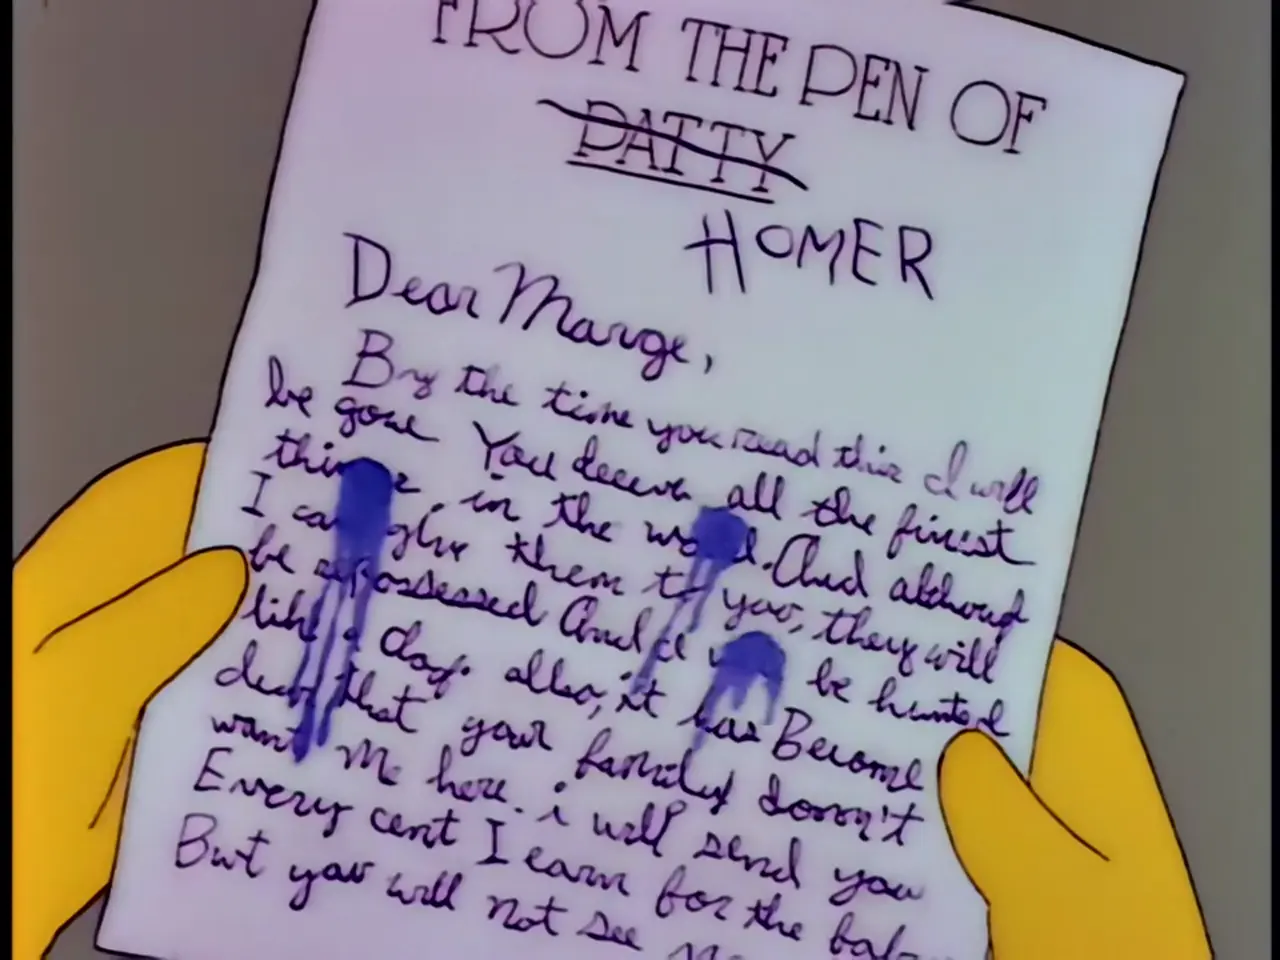 FROM THE PEN OF
PATTY
HOMER
Dear Marge,
By the time you read this I will
be gone You deserve all the finest
things in the world. And although
I can give them to you, they will
be repossessed And I will be hunted
like a dog. also, it has Become
clear that your family doesn't
want Me here. i will send you
Every cent I earn for the baby
But you will not see